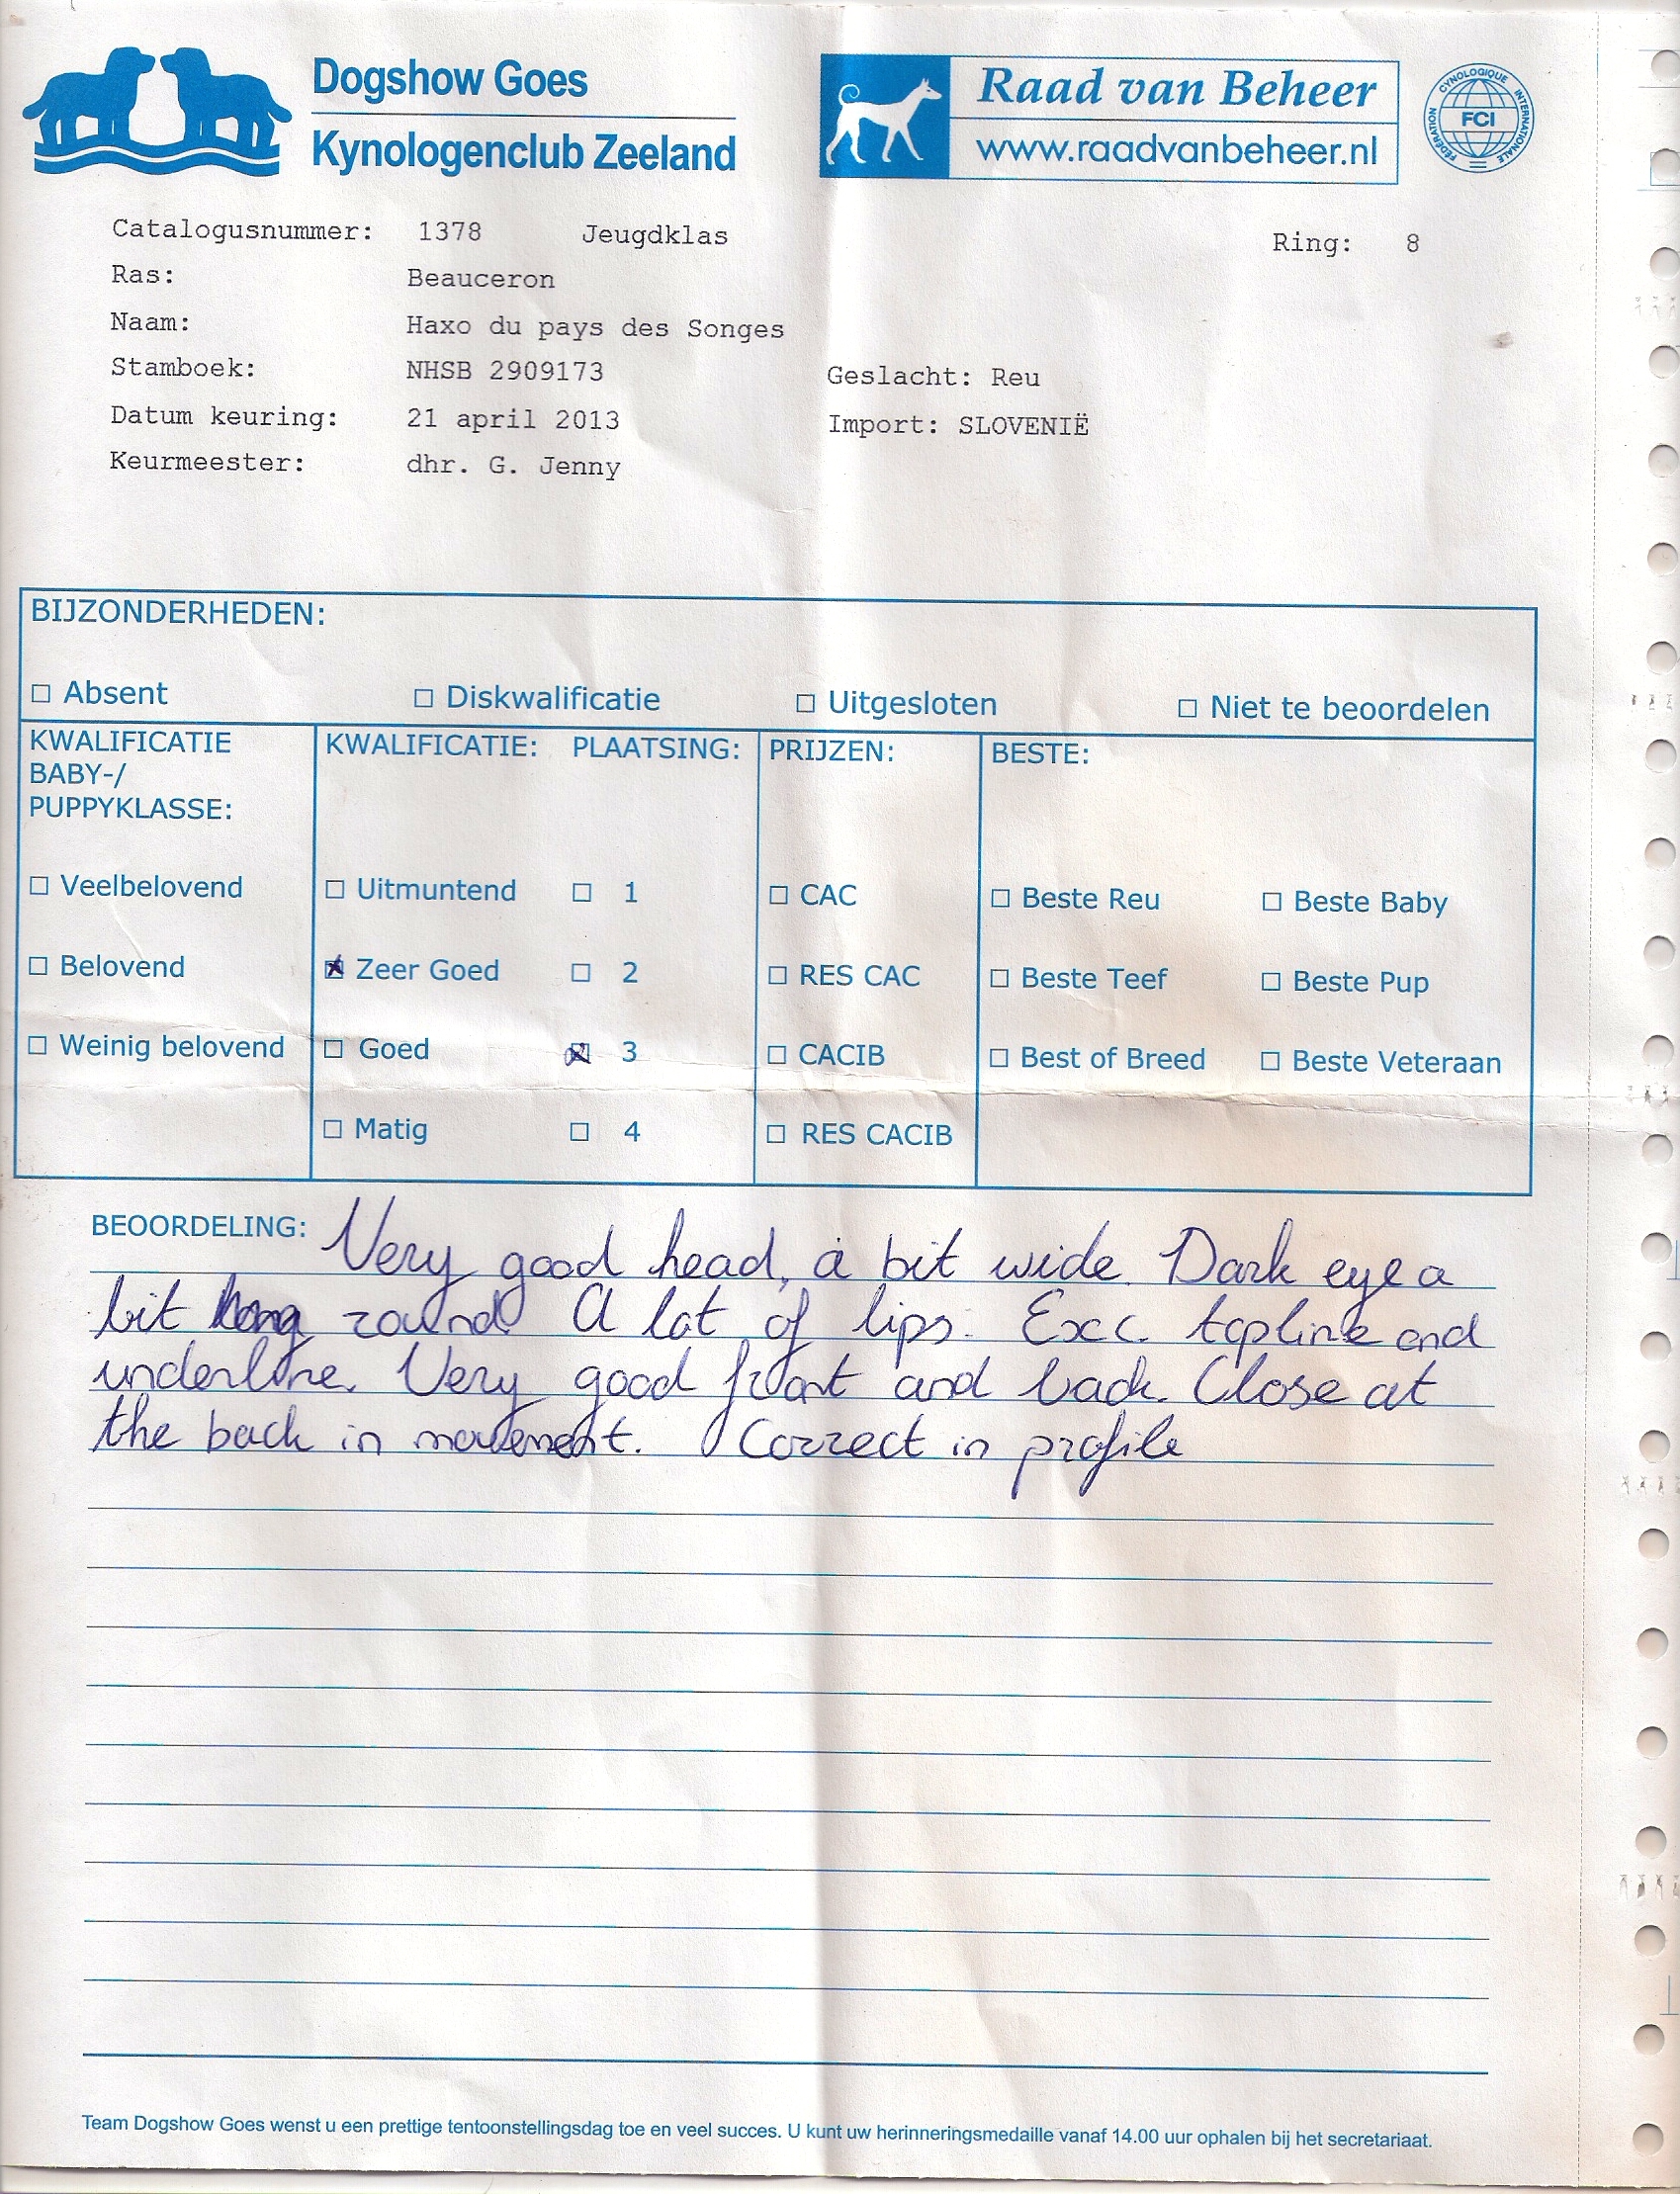 Dogshow Goes
Kynologenclub Zeeland
Raad van Beheer
www.raadvanbeheer.nl
FEDERATION CYNOLOGIQUE INTERNATIONALE
FCI
Catalogusnummer: 1378 Jeugdklas Ring: 8
Ras: Beauceron
Naam: Haxo du pays des Songes
Stamboek: NHSB 2909173 Geslacht: Reu
Datum keuring: 21 april 2013 Import: SLOVENIË
Keurmeester: dhr. G. Jenny
BIJZONDERHEDEN:
☐ Absent ☐ Diskwalificatie ☐ Uitgesloten ☐ Niet te beoordelen
KWALIFICATIE
BABY-/
PUPPYKLASSE:
☐ Veelbelovend
☐ Belovend
☐ Weinig belovend
KWALIFICATIE: PLAATSING:
☐ Uitmuntend ☐ 1
☒ Zeer Goed ☐ 2
☐ Goed ☒ 3
☐ Matig ☐ 4
PRIJZEN:
☐ CAC
☐ RES CAC
☐ CACIB
☐ RES CACIB
BESTE:
☐ Beste Reu ☐ Beste Baby
☐ Beste Teef ☐ Beste Pup
☐ Best of Breed ☐ Beste Veteraan
BEOORDELING: Very good head, a bit wide. Dark eye a
bit round A lot of lips. Exc. topline and
underline. Very good front and back. Close at
the back in movement. Correct in profile
Team Dogshow Goes wenst u een prettige tentoonstellingsdag toe en veel succes. U kunt uw herinneringsmedaille vanaf 14.00 uur ophalen bij het secretariaat.